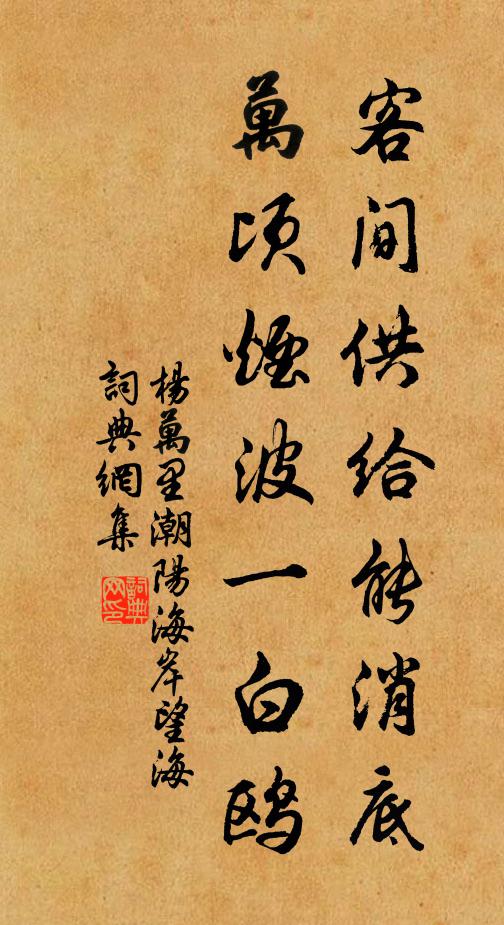 客間供給能消底
萬頃煙波一白鷗
楊萬里潮陽海岸望海
詞典網集
詞典网印